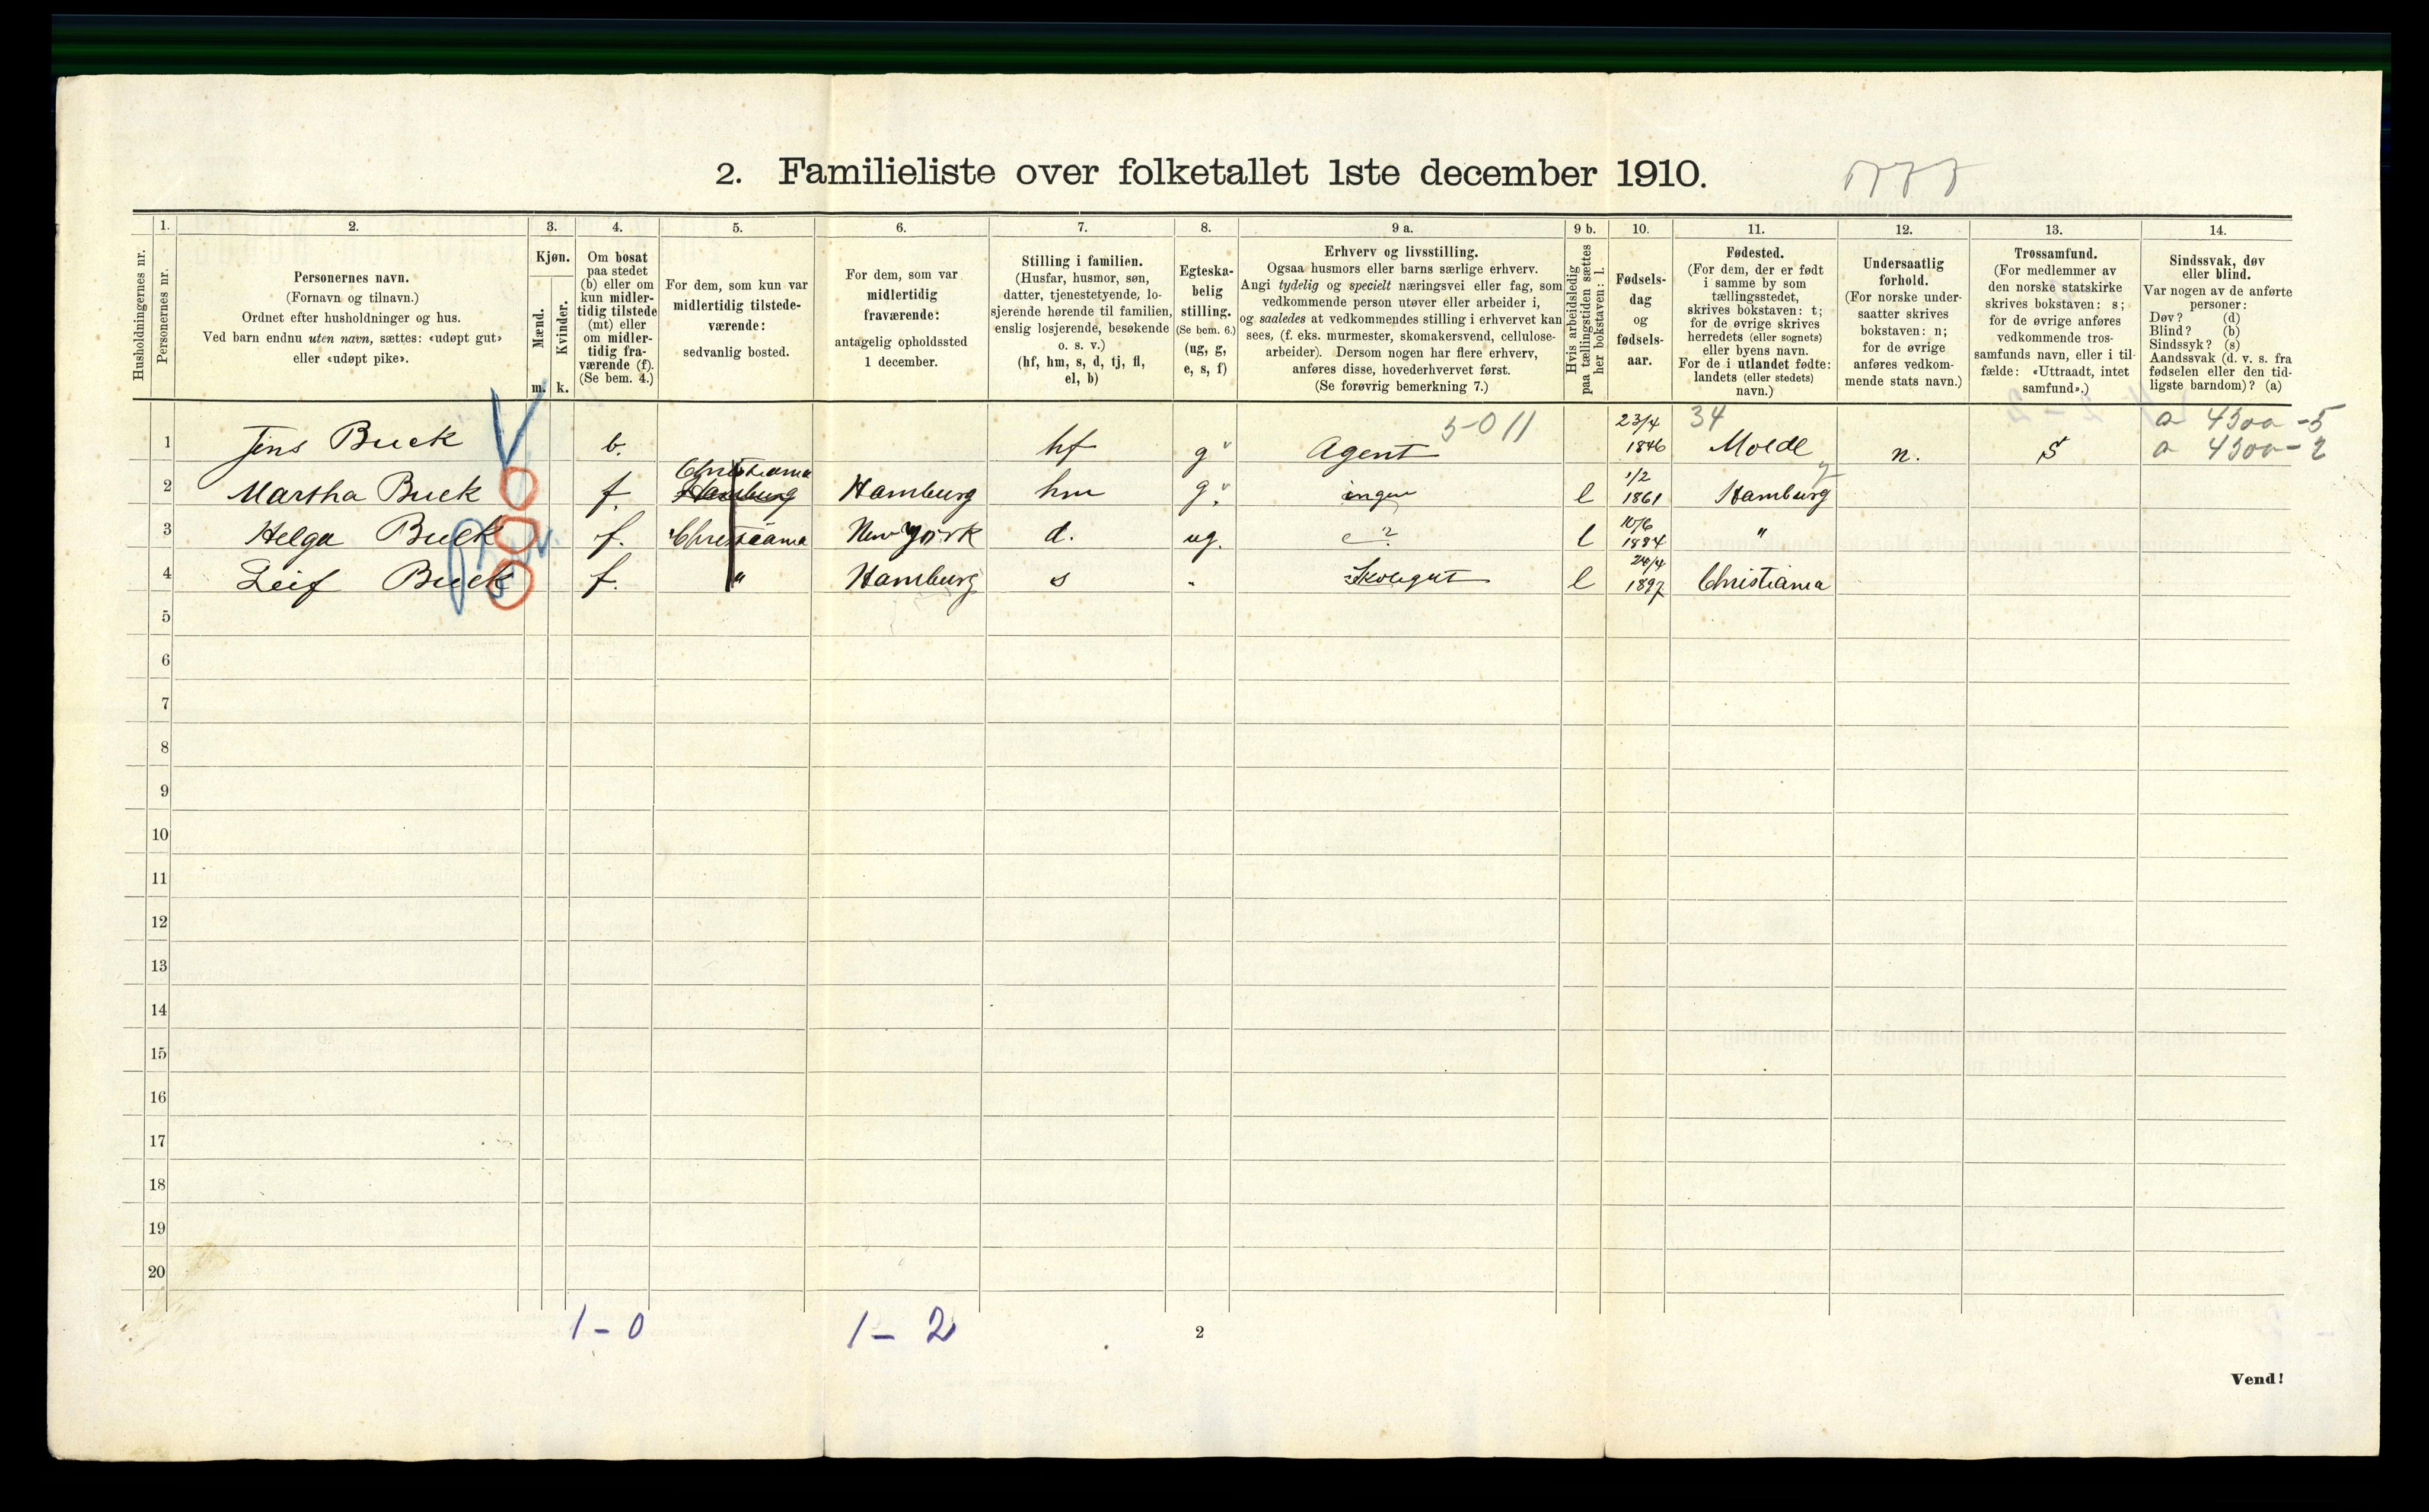 2. Familieliste over folketallet 1ste december 1910.
Husholdningernes nr.
1. Personernes nr.
2.
Personernes navn.
(Fornavn og tilnavn.)
Ordnet efter husholdninger og hus.
Ved barn endnu uten navn, sættes: «udøpt gut»
eller «udøpt pike».
3.
Kjøn.
Mænd.
Kvinder.
m. k.
4.
Om bosat
paa stedet
(b) eller om
kun midler-
tidig tilstede
(mt) eller
om midler-
tidig fra-
værende (f).
(Se bem. 4.)
5.
For dem, som kun var
midlertidig tilstede-
værende:
sedvanlig bosted.
6.
For dem, som var
midlertidig
fraværende:
antagelig opholdssted
1 december.
7.
Stilling i familien.
(Husfar, husmor, søn,
datter, tjenestetyende, lo-
sjerende hørende til familien,
enslig losjerende, besøkende
o. s. v.)
(hf, hm, s, d, tj, fl,
el, b)
8.
Egteska-
belig
stilling.
(Se bem. 6.)
(ug, g,
e, s, f)
9 a.
Erhverv og livsstilling.
Ogsaa husmors eller barns særlige erhverv.
Angi tydelig og specielt næringsvei eller fag, som
vedkommende person utøver eller arbeider i,
og saaledes at vedkommendes stilling i erhvervet kan
sees, (f. eks. murmester, skomakersvend, cellulose-
arbeider). Dersom nogen har flere erhverv,
anføres disse, hovederhvervet først.
(Se forøvrig bemerkning 7.)
9 b.
Hvis arbeidsledig
paa tællingstiden sættes
her bokstaven: l.
10.
Fødsels-
dag
og
fødsels-
aar.
11.
Fødested.
(For dem, der er født
i samme by som
tællingsstedet,
skrives bokstaven: t;
for de øvrige skrives
herredets (eller sognets)
eller byens navn.
For de i utlandet fødte:
landets (eller stedets)
navn.)
12.
Undersaatlig
forhold.
(For norske under-
saatter skrives
bokstaven: n;
for de øvrige
anføres vedkom-
mende stats navn.)
13.
Trossamfund.
(For medlemmer av
den norske statskirke
skrives bokstaven: s;
for de øvrige anføres
vedkommende tros-
samfunds navn, eller i til-
fælde: «Uttraadt, intet
samfund».)
14.
Sindssvak, døv
eller blind.
Var nogen av de anførte
personer:
Døv? (d)
Blind? (b)
Sindssyk? (s)
Aandssvak (d. v. s. fra
fødselen eller den tid-
ligste barndom)? (a)
5-011 23/4 34 a 4500-5
1 Jens Buck b. hf g Agent 1846 Molde n. S a 4500-2
Christiania 1/2
2 Martha Buck f. Hamburg Hamburg hm g. ingen l 1861 Hamburg
10/6
3 Helga Buck f. Christiania New York d. ug. l 1884 "
24/4
4 Leif Buck f. " Hamburg s " Skolegut l 1897 Christiania
5
6
7
8
9
10
11
12
13
14
15
16
17
18
19
20
1-0 1-2 2
Vend!